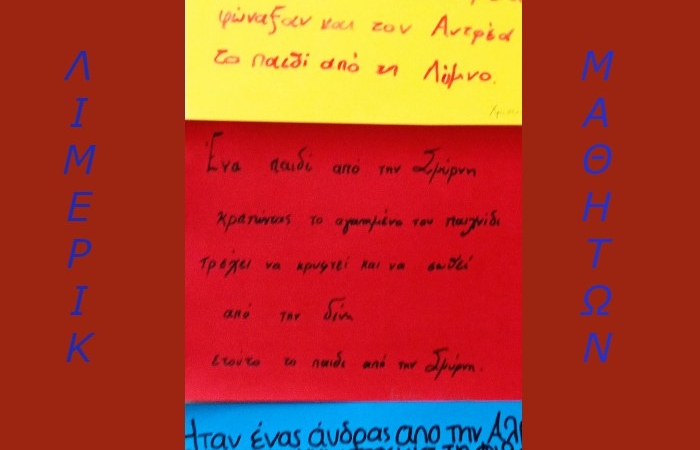 ΛΙΜΕΡΙΚ
φώναξαν και τον Αντρέα
το παιδί από τη Λήμνο.
Ένα παιδί από την Σμύρνη
κρατώντας το αγαπημένο του παιχνίδι
τρέχει να κρυφτεί και να σωθεί
από την δίνη
ετούτο το παιδί από την Σμύρνη.
Ήταν ένας άνδρας απο την
ΜΑΘΗΤΩΝ